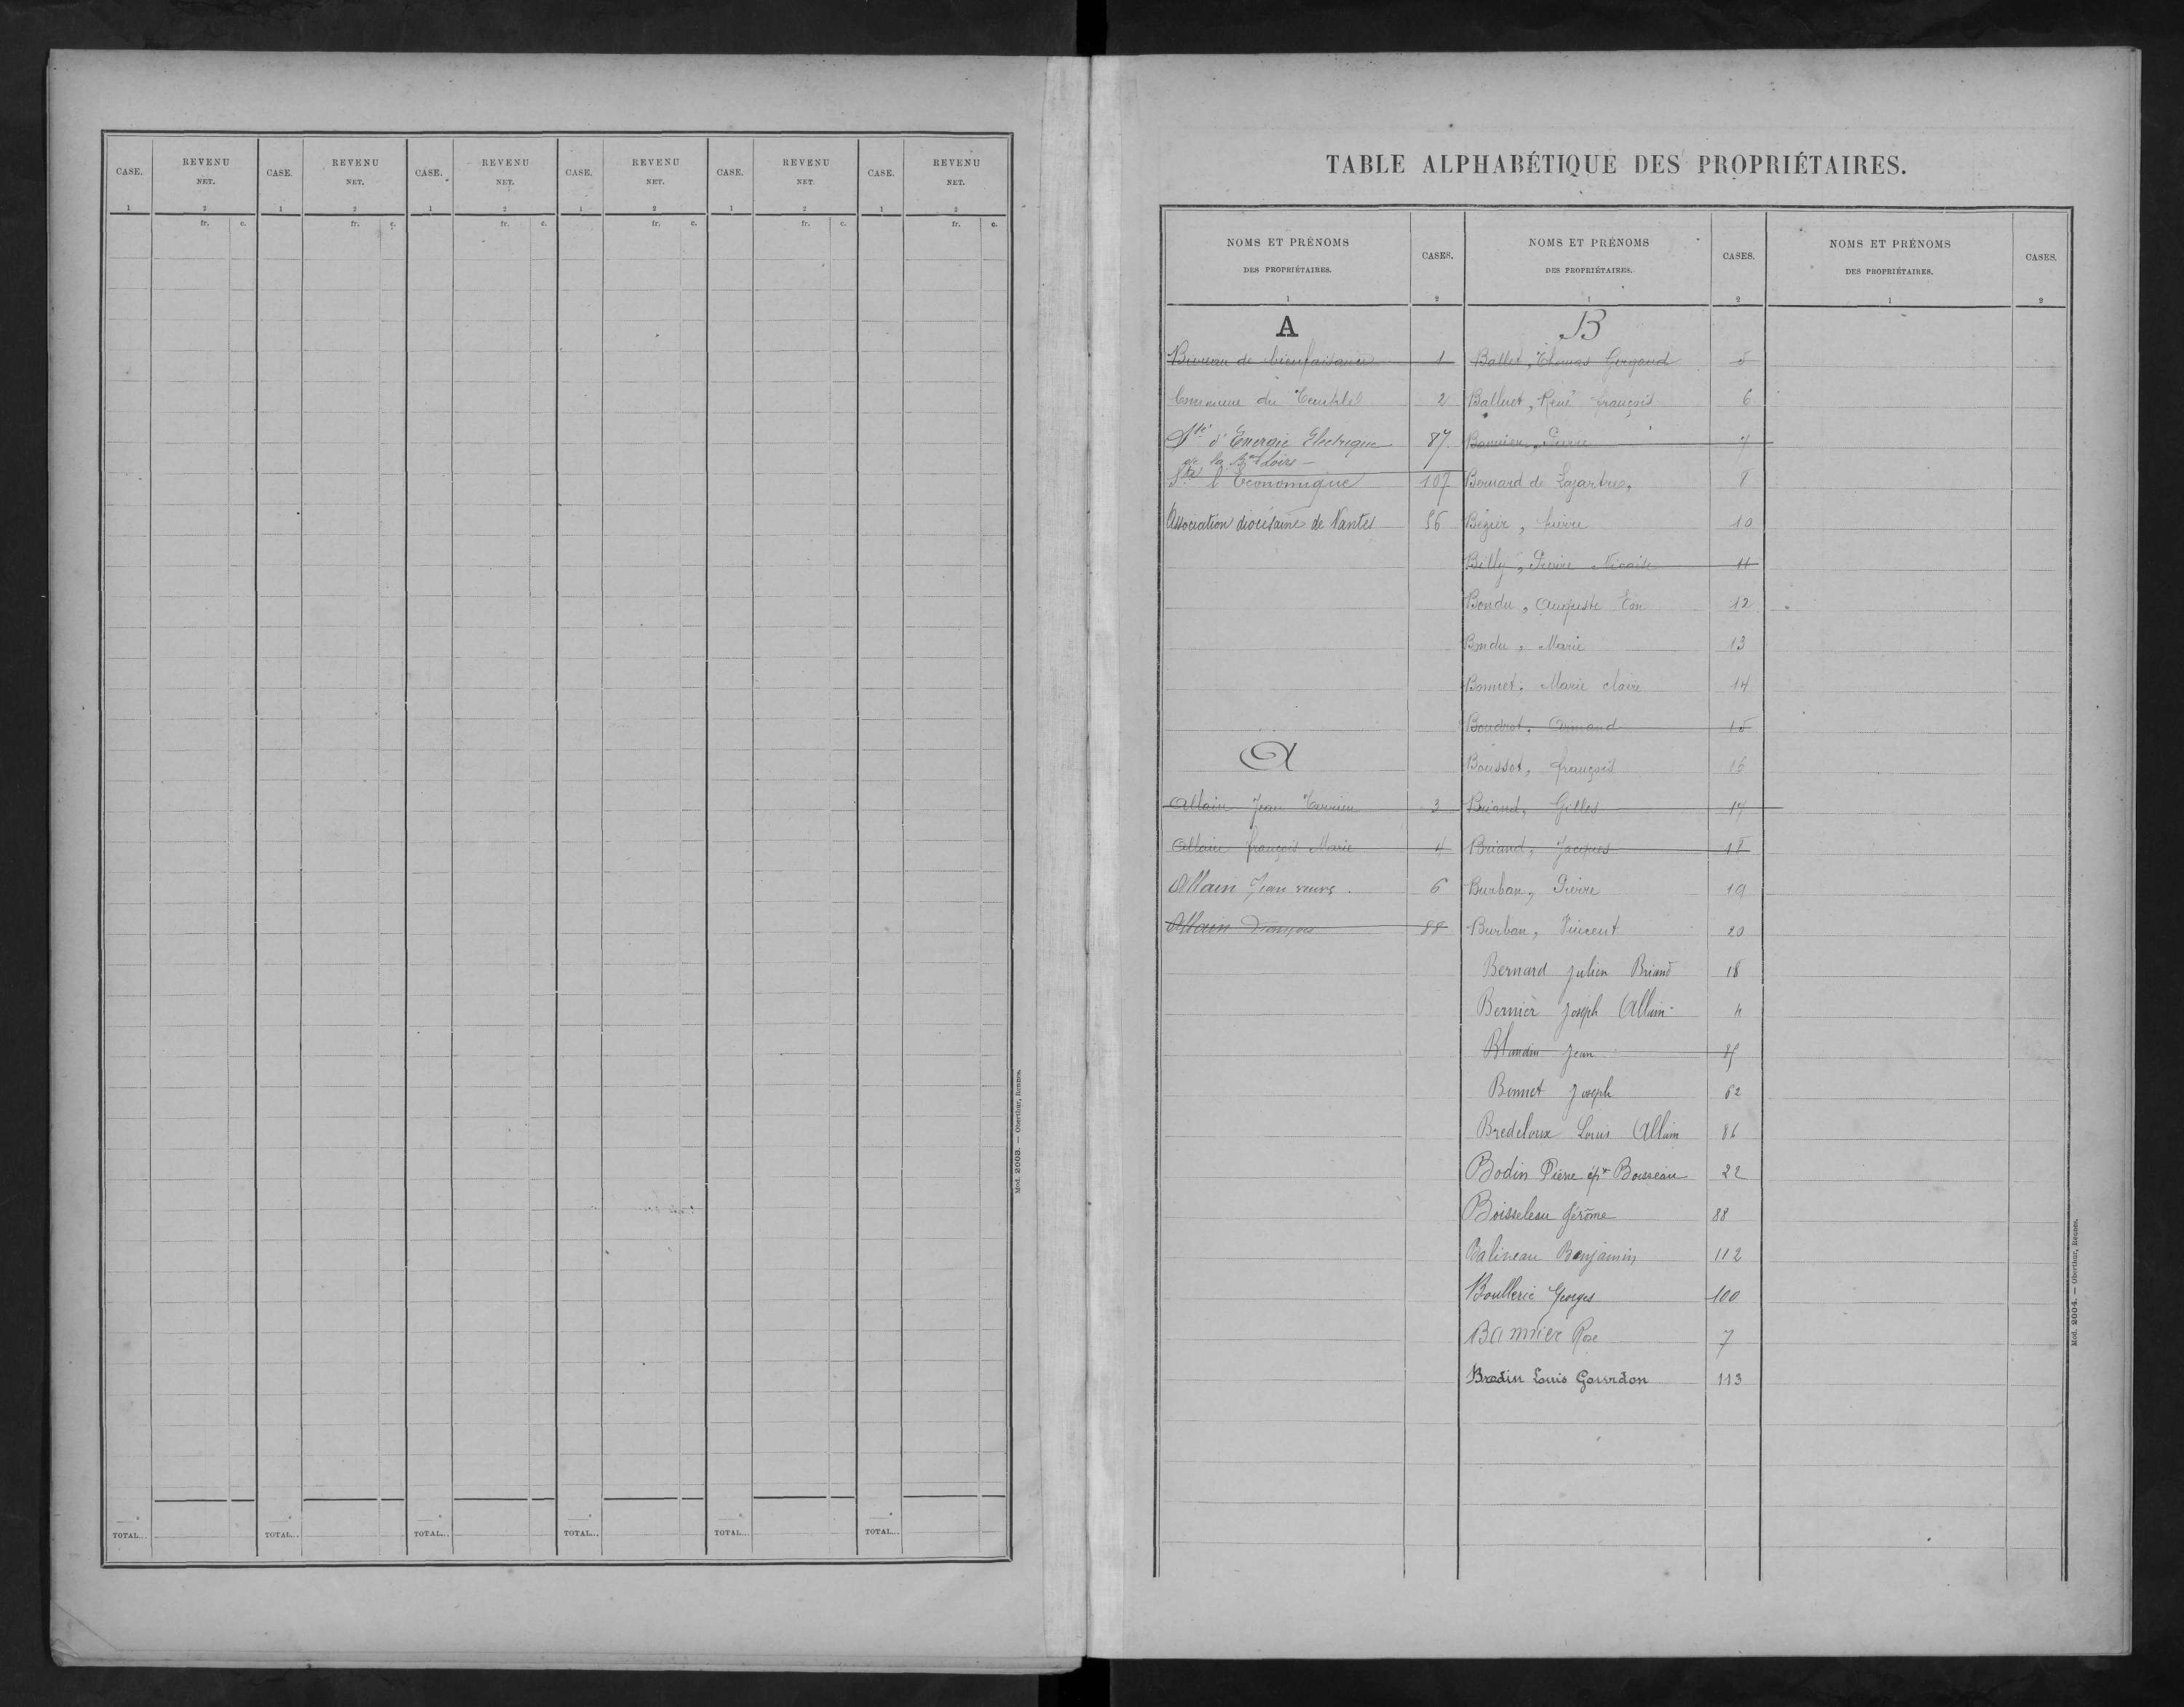 CASE. REVENU NET. CASE. REVENU NET. CASE. REVENU NET. CASE. REVENU NET. CASE. REVENU NET. CASE. REVENU NET.
1 2 1 2 1 2 1 2 1 2 1 2
fr. c. fr. c. fr. c. fr. c. fr. c. fr. c.
TOTAL... TOTAL... TOTAL... TOTAL... TOTAL... TOTAL...
Mod. 2003. — Oberthur, Rennes.
TABLE ALPHABÉTIQUE DES PROPRIÉTAIRES.
NOMS ET PRÉNOMS DES PROPRIÉTAIRES. CASES. NOMS ET PRÉNOMS DES PROPRIÉTAIRES. CASES. NOMS ET PRÉNOMS DES PROPRIÉTAIRES. CASES.
1 2 1 2 1 2
A
Bureau de bienfaisance 1
Commune du 2
Sté d'Energie Electrique 87
de la Bse Loire
Sté l'Economique 107
Association diocésaine de Nantes 56
A
Allain Jean Terrien 3
Allain françois Marie 4
Allain Jean veuve 6
Allain François 88
B
Ballet, Thomas 5
Balluet, René françois 6
Bannier, Pierre 7
Bernard de Lajartre, 8
Bégier, Pierre 10
Billy, Pierre Nicaise 11
Bondu, Auguste 12
Bondu, Marie 13
Bonnet, Marie claire 14
Boudrot, Armand 15
Boussot, françois 16
Briand, Gilles 17
Briand, Jacques 18
Burban, Pierre 19
Burban, Vincent 20
Bernard Julien Briand 18
Bernier Joseph Allain 4
Blandin Jean
Bonnet Joseph 62
Bredeloux Louis Allain 86
Bodin Pierre épx Boisseau 22
Boisseleau Gérôme 88
Balineau Benjamin 112
Boullerie Georges 100
Bannier Rose 7
Bradin Louis Gourdon 113
Mod. 2004. — Oberthur, Rennes.